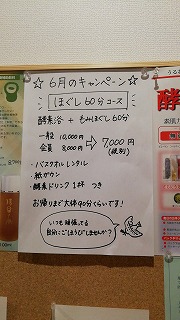 ☆ 6月のキャンペーン ☆
ほぐし60分コース
酵素浴 + もみほぐし60分
一般 10,000円
会員 8,000円
⇨ 7,000円
(税別)
・バスタオル レンタル
・紙ガウン
・酵素ドリンク 1杯 つき
お帰りまで大体90分くらいです!
いつも頑張ってる
自分にごほうびしませんか?
酵